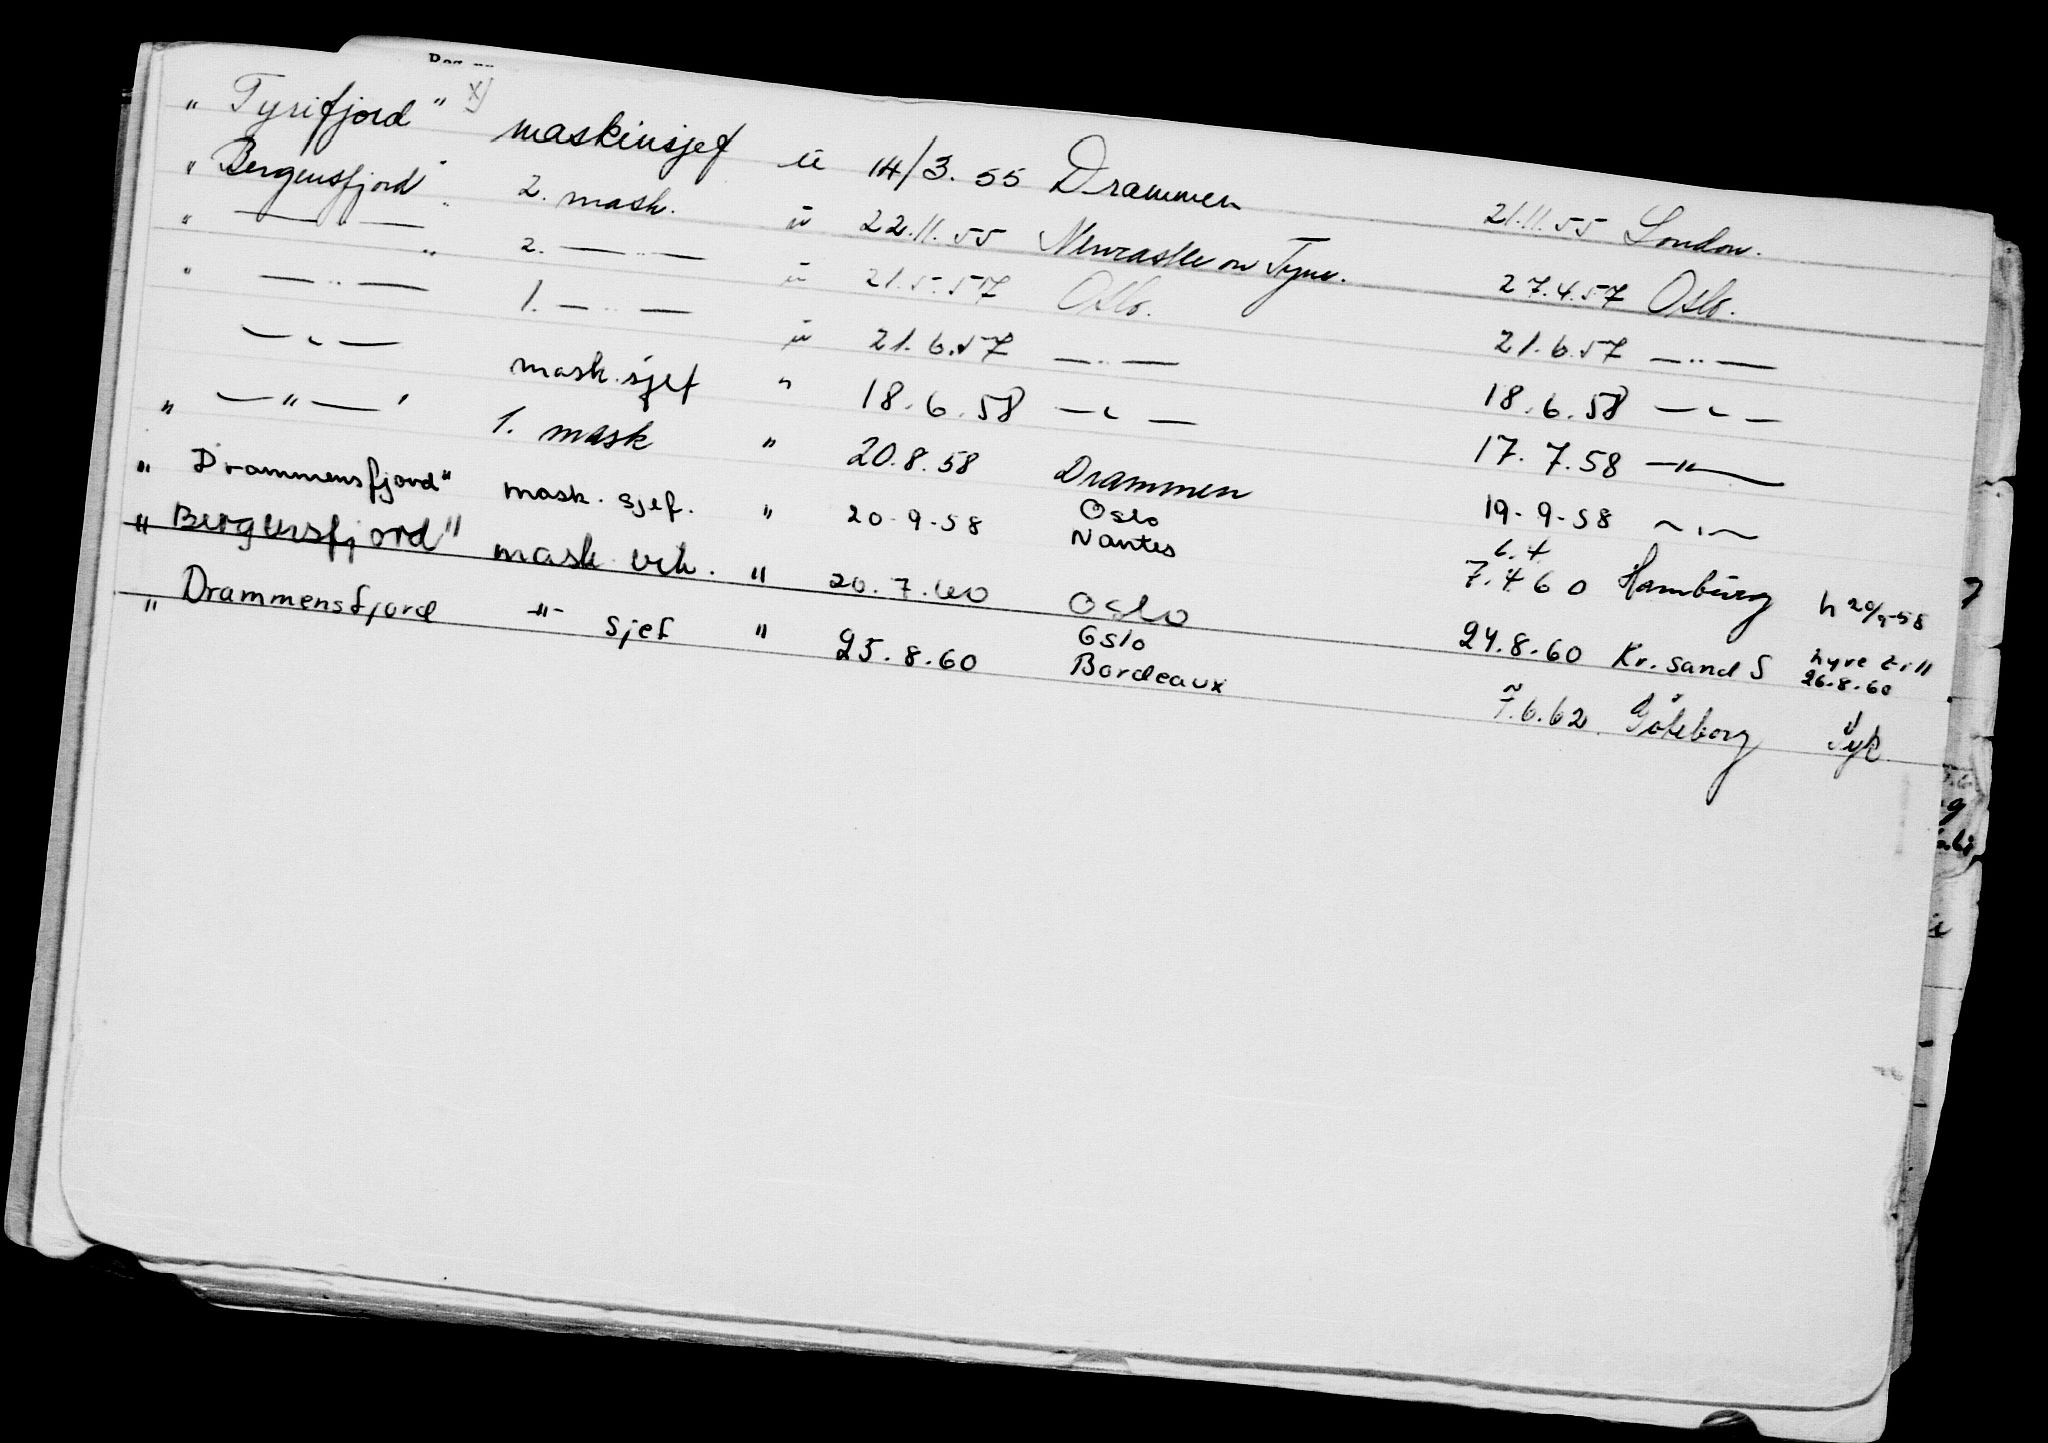 " Tyrifjord " x) maskinsjef u 14/3. 55 Drammen 21.11.55 London.
" Bergensfjord " 2. mask. u 22.11.55 Newcastle on Tyne. 27.4.57 Oslo.
" — " — " 2. — " — u 21.5.57 Oslo. 21.6.57 — " —
" — " — 1. — " — u 21.6.57 — " — 18.6.58 — " —
— " — mask.sjef " 18.6.58 — " — 17.7.58 — " —
" — " — " 1. mask " 20.8.58 Drammen 19.9.58 — " —
" Drammensfjord " mask. sjef. " 20.9.58 Oslo Nantes 6.4 7.4 60 Hamburg h 20/9-58
" Bergensfjord " mask. " 20.7.60 Oslo 24.8.60 Kr. sand S hyre till 26.8.60
" Drammensfjord — " — sjef " 25.8.60 Oslo Bordeaux 7.6.62. Göteborg Syk.